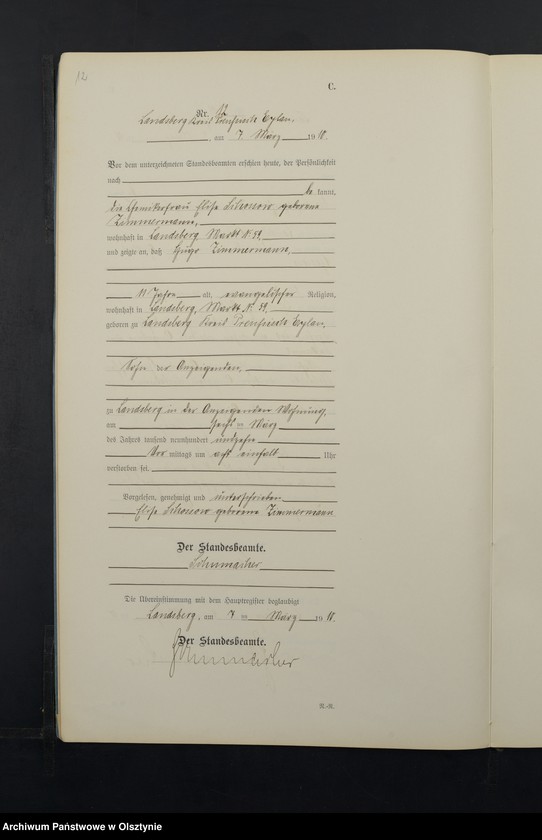 12
C.
Nr. 12
Landsberg Kreis Preußisch Eylau,
am 7. März 19 18.
Vor dem unterzeichneten Standesbeamten erschien heute, der Persönlichkeit
nach be kannt,
die geborene
Zimmermann,
wohnhaft in Landsberg Markt No 59,
und zeigte an, daß Hugo Zimmermann,
11 Jahre alt, evangelischer Religion,
wohnhaft in Landsberg, Markt No. 59,
geboren zu Landsberg Kreis Preußisch Eylau,
Sohn der Anzeigenden,
zu Landsberg in der Anzeigenden Wohnung,
am sechs ten März
des Jahres tausend neunhundert
Vor mittags um acht einhalb Uhr
verstorben sei.
Vorgelesen, genehmigt und unterschrieben
Elise geborene Zimmermann
Der Standesbeamte.
Schumacher
Die Übereinstimmung mit dem Hauptregister beglaubigt
Landsberg, am 7 ten März 19 18.
Der Standesbeamte.
Schumacher
R.-R.
Archiwum Państwowe w Olsztynie